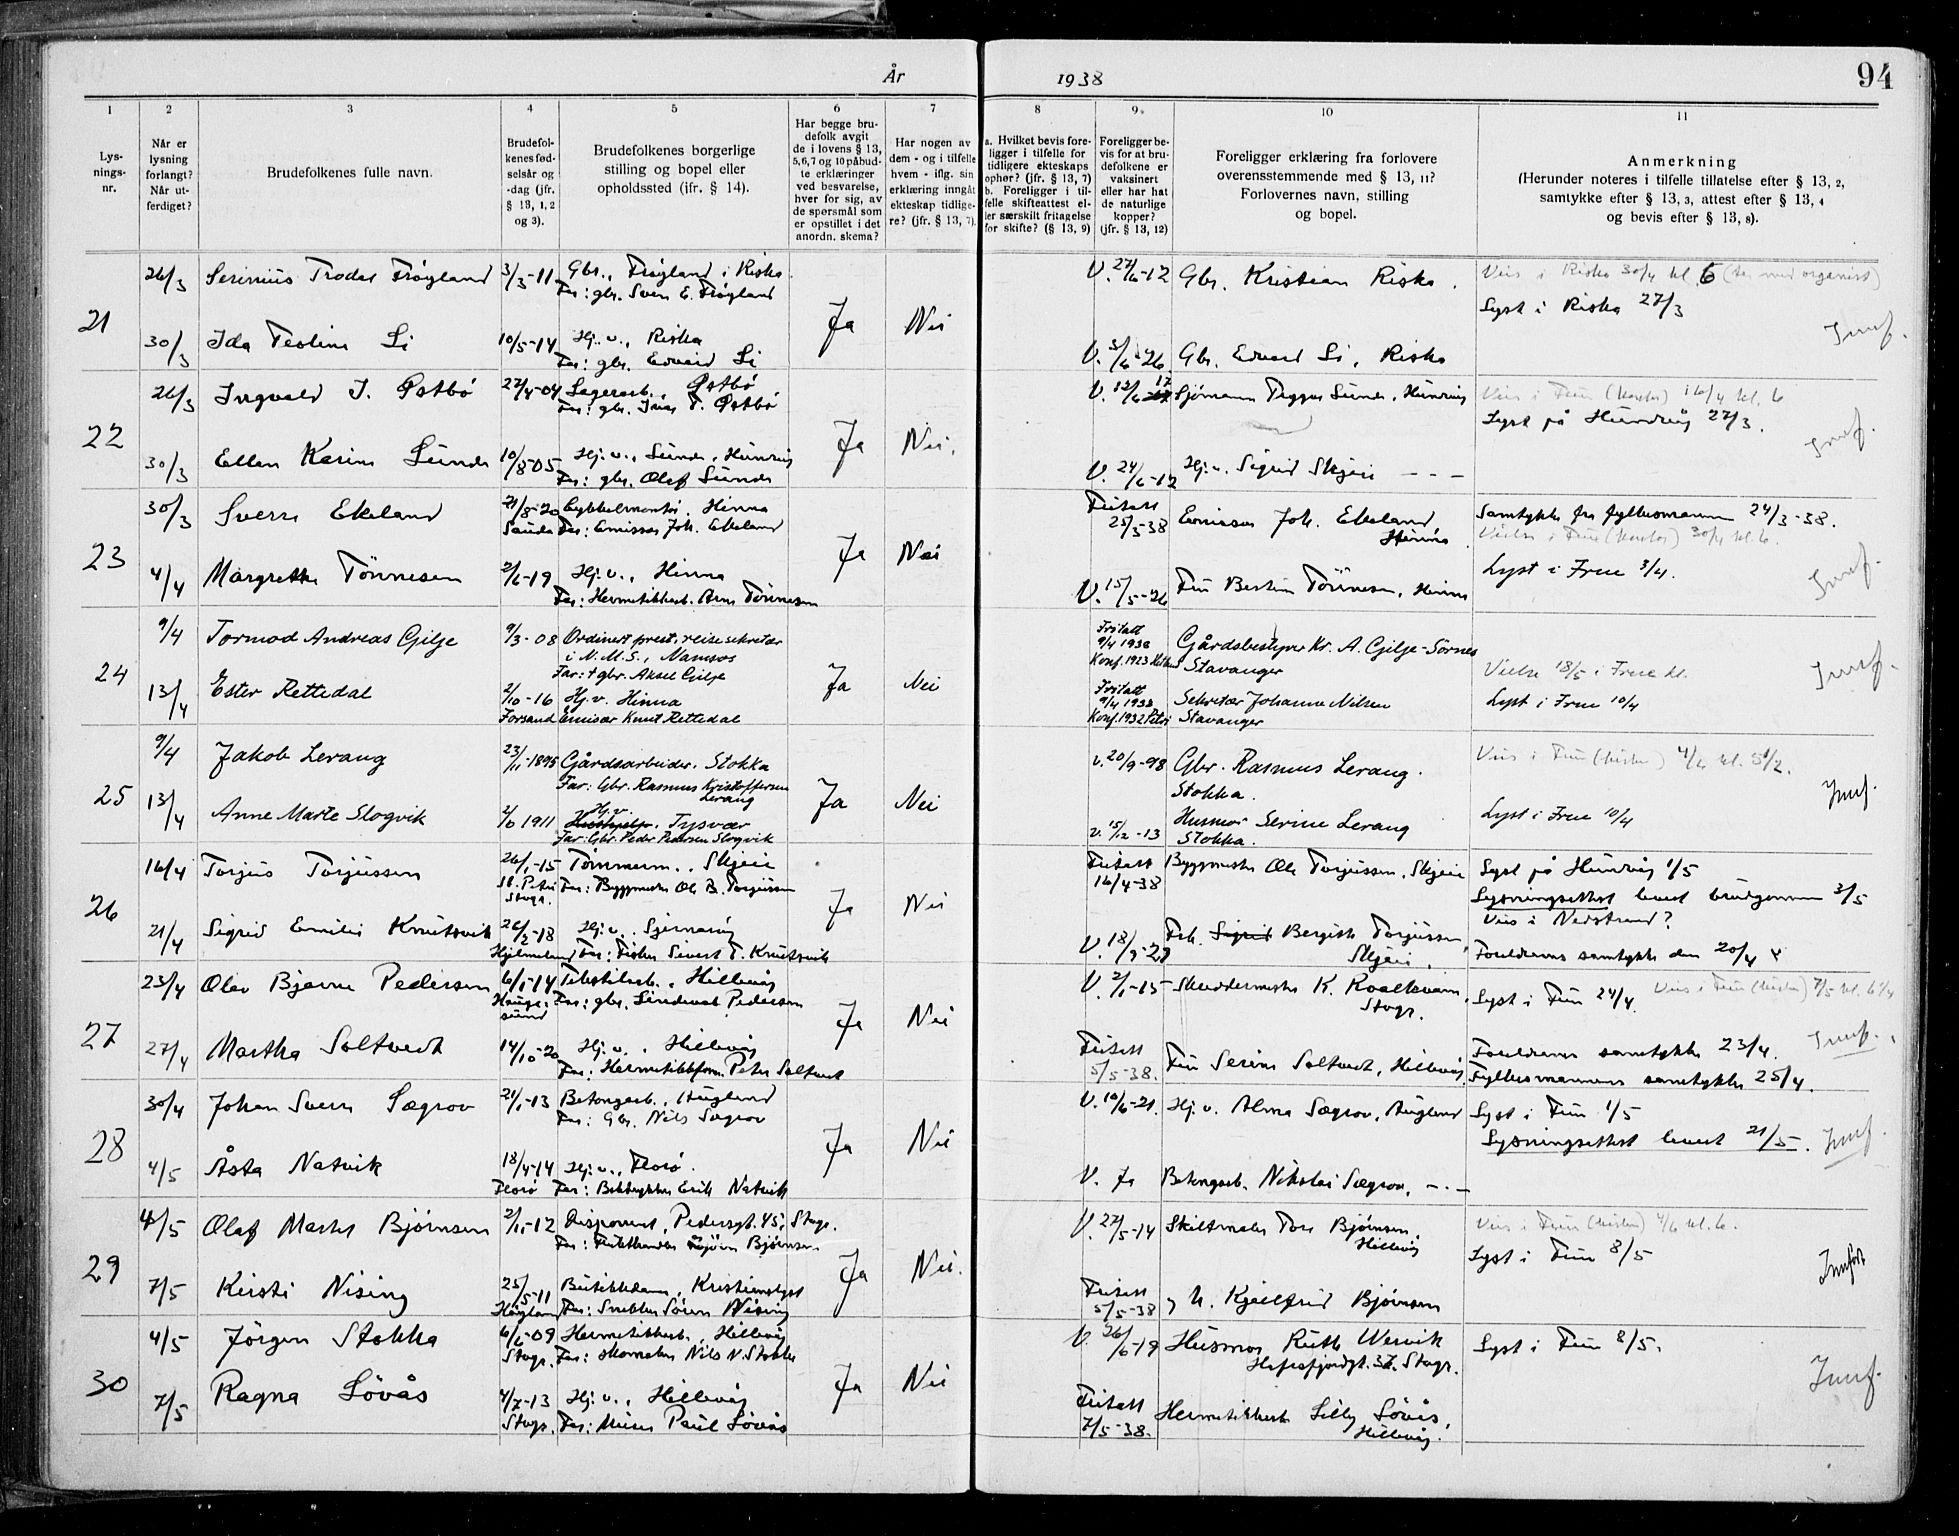 År 1938
94
1
2
3
4
5
6
7
8
9.
10
11
Lys-
nings-
nr.
Når er
lysning
forlangt?
Når ut-
ferdiget?
Brudefolkenes fulle navn.
Brudefol-
kenes fød-
selsår og
-dag (jfr.
§ 13, 1, 2
og 3).
Brudefolkenes borgerlige
stilling og bopel eller
opholdssted (jfr. § 14).
Har begge bru-
defolk avgit
de i lovens § 13,
5,6,7 og 10 påbud-
te erklæringer
ved besvarelse,
hver for sig, av
de spørsmål som
er opstillet i det
anordn. skema?
Har nogen av
dem - og i tilfelle
hvem - iflg. sin
erklæring inngått
ekteskap tidlige-
re? (jfr. § 13, 7).
a. Hvilket bevis fore-
ligger i tilfelle for
tidligere ekteskaps
ophør? (jfr. § 13, 7)
b. Foreligger i til-
felle skifteattest el-
ler særskilt fritagelse
for skifte? (§ 13, 9)
Foreligger be-
vis for at bru-
defolkene er
vaksinert
eller har hat
de naturlige
kopper?
(jfr. § 13, 12)
Foreligger erklæring fra forlovere
overensstemmende med § 13, 11?
Forlovernes navn, stilling
og bopel.
Anmerkning
(Herunder noteres i tilfelle tillatelse efter § 13, 2,
samtykke efter § 13, 3, attest efter § 13, 4
og bevis efter § 13, 8).
21
26/3 Serinius Trodal Frøyland 3/3-11 Gbr., Frøyland i Riska
Far: gbr. Sven E. Frøyland
Ja Nei
V. 27/6-12 Gbr. Kristian Riska.
Vies i Riska 30/4 kl. 6
Lyst i Riska 27/3
30/3 Ida Teoline Li 10/5-14 Hj. v., Riska
Far: gbr. Edvard Li
Gbr. Edvard Li, Riska
Innf.
22
26/3 Ingvald I. Østbø 27/4-04 Lagerarb., Østbø
Far: gbr. Ivar T. Østbø
Ja Nei.
Lyst på Hundvåg 27/3.
30/3 Ellen Karine Sunde 10/8-05 Hj. v., Sunde, Hundvåg
Far: gbr. Olaf Sunde
V. 24/6-12 Hj. v. Sigrid Skjei - - -
Innf.
23
30/3 Sverre Ekeland 21/8-20
Sauda Far: Emissær Joh. Ekeland
Ja Nei
Fritatt 25/3-38 Emissær Joh. Ekeland, Hinna.
Samtykke fra fylkesmannen 24/3-38.
4/4 Margrethe Tönnesen 2/6-19 Hj. v., Hinna
Far: Hermetikkarb. Arne Tönnesen
V. 15/5-26 Fru Bertine Tönnesen, Hinna
Lyst i Frue 3/4.
Innf.
24
9/4 Tormod Andreas Gilje 9/3-08 Ordinert prest, reisesekretær
i N.M.S., Namsos
Far: † gbr. Aksel Gilje
Ja Nei
Fritatt 9/4 1938
Konf. 1923
Gårdsbestyrer Kr. A. Gilje-Sörnes
Stavanger
Vielse 18/5 i Frue kl.
13/4 Ester Rettedal 2/10-16 Hj. v. Hinna
Forsand Emissær Knut Rettedal
Fritatt 9/4 1938
Konf. 1932 Petri
Sekretær Johanne Nilsen
Stavanger
Lyst i Frue 10/4
Innf.
25
9/4 Jakob Lerang 23/11-1895 Gårdsarbeider, Stokka
Far: Gbr. Rasmus Kristoffersen
Lerang
Ja Nei
v. 20/9-98 Gbr. Rasmus Lerang.
Stokka.
13/4 Anne Marte Slogvik 1911 Hj. v. Tysvær
Far: Gbr. Peder Pedersen Slogvik
v. 15/12-13 Husmor Serine Lerang
Stokka.
Lyst i Frue 10/4
Innf.
26
16/4 Torjus Torjussen 26/1-15 Tömmerm., Skjeie
St. Petri Stvgr. Far: Byggmester Ole B. Torjussen
Ja Nei
Fritatt 16/4-38 Byggmester Ole Torjussen, Skjeie
Lyst på Hundvåg 1/5
Lysningsattest levert brudgommen 3/5
Vies i Nedstrand?
21/4 Sigrid Emilie Knutsvik 26/2-18 Hj. v., Sjernaröy
Hjelmeland Far: Fisker Sivert T. Knutsvik
Frk. Sigrid Bergith Torjussen,
Skjeie.
Foreldrenes samtykke den 20/4
27
23/4 Olav Bjarne Pedersen 6/1-14 Tekstilarb., Hillevåg
Haugesund Far: gbr. Sindevat Pedersen
Ja Nei
V. 2/1-15 Skreddermester K. Roalkvam,
Stvgr.
Lyst i Frue 24/4.
27/4 Martha Saltvedt 14/10-20 Hj. v., Hillevåg
Far: Hermetikkform. Peter Saltvedt
Fritatt 5/5-38. Fru Serine Saltvedt, Hillevåg
Foreldrenes samtykke 23/4.
Fylkesmannens samtykke 25/4.
Innf.
28
30/4 Johan Sverre Sægrov 21/1-13 Betongarb., Auglend
Far: Gbr. Nils Sægrov
Ja Nei
V. 10/6-21. Hj. v. Alma Sægrov, Auglend
Lyst i Frue 1/5
Lysningsattest levert 21/5.
4/5 Åsta Natvik 18/4-14 Hj. v., Florö.
Florö Far: Erik Natvik
V. Ja Betongarb. Nikolai Sægrov, - . -
Innf.
29
4/5 Olaf Martin Bjørnsen 2/11-12 Disponent, Pedersgt. 45, Stvgr.
Far: Bjørnsen
Ja Nei.
V. 27/5-14 Skiltmaler Tore Bjørnsen,
Hillevåg
Lyst i Frue 8/5
7/5 Kirsti Nising 25/5-11 Butikkdame, Kristianslyst
Høyland Far: Snekker Sören Nising
Fritatt 5/5-38 Kjellfrid Bjørnsen
Innført
30
4/5 Jörgen Stokka 6/6-09 Hermetikkarb., Hillevåg
Stvgr. Far: skomaker Nils N. Stokka
Ja Nei
V. 26/6-19 Husmor Ruth Wervik
Hafrsfjordgt. Stvgr.
Lyst i Frue 8/5.
7/5 Ragna Lövås 4/7-13 Hj. v., Hillevåg
Stvgr. Far: Murer Paul Lövås
Fritatt 7/5-38. Hermetikkarb. Lilly Lövås,
Hillevåg.
Innf.